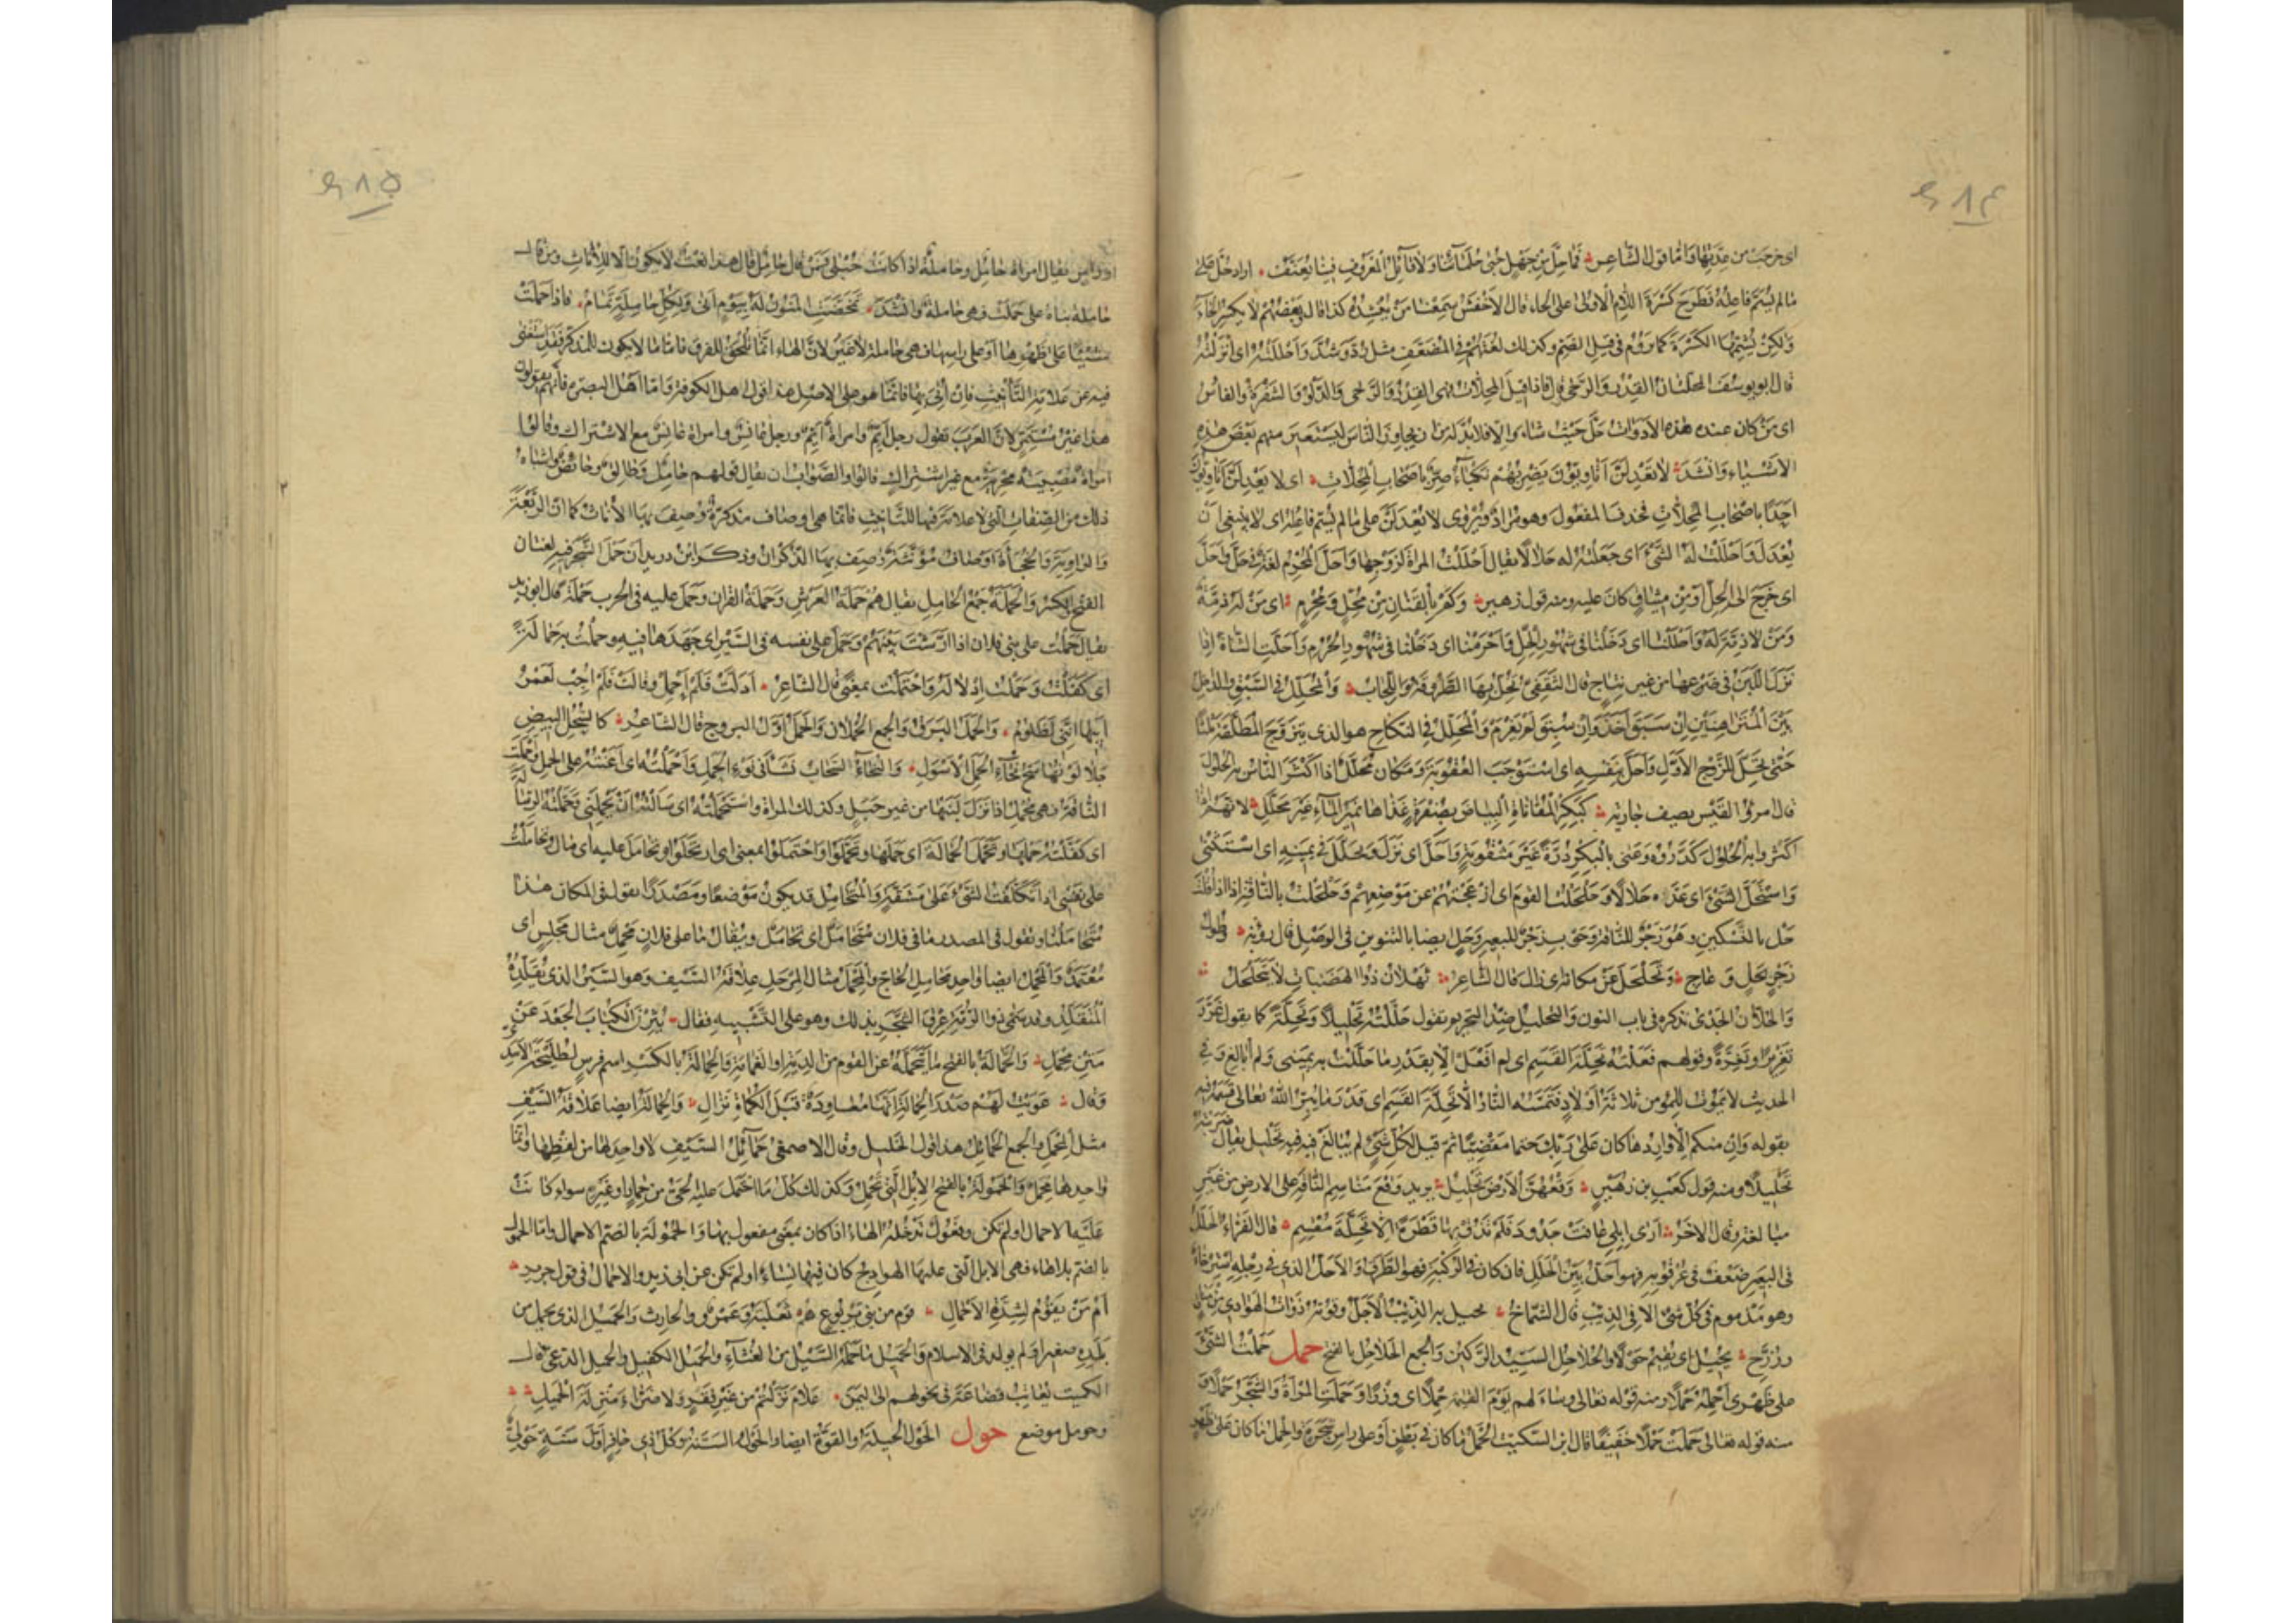 ٤١٤
اى خرجت من عدّتها وامّا قول الشاعر فما حلّ من جهل حبى حلمائنا ولا قائل المعروف فينا يعنّف اراد حُلّ على
مالم يسمّ فاعله فطرح كسرة اللام الاولى على الحاء قال الاخفش سمعنا من ينشده كذا قال وبعضهم لا يكسر الحاء
ولكن يشمّها الكسرة كما يروم فى قيل الضم وكذلك لغتهم فى المضعّف مثل ردّ وشدّ واحللته اى انزلته
قال ابو يوسف المحلّتان القدر والرحى قال فاذا قيل المحلات فهى القدر والرحى والدلو والشفرة والفاس
اى من كان عنده هذه الادوات حلّ حيث شاء والا فلا بدّ له من ان يجاور الناس ليستعير منهم بعض هذه
الاشياء وانشد لا تعدلنّ اتاويّون تضربهم نكباء صرّ باصحاب المحلات اى لا يعدلنّ اتاويون
احدًا باصحاب المحلات فحذف المفعول وهو مراد ويروى لا تعدلنّ على مالم يسم فاعله اى لا ينبغى ان
يعدل واحللت له الشئ اى جعلته له حلالا يقال احللت المراة لزوجها واحلّ المحرم لغة فى حلّ واحلّ
اى خرج الى الحل او من ميثاق كان عليه ومنه قول زهير وكم بالقنان من محل ومحرم اى من له ذمة
ومن لا ذمة له واحللنا اى دخلنا فى شهور الحل واحرمنا اى دخلنا فى شهور الحرم واحلّت الشاة اذا
نزل اللبن فى ضرعها من غير نتاج قال الثقفى تحل بها الطروقة واللجاب والمحلّل فى السبق الداخل
بين المتراهنين ان سبق اخذ وان سبق لم يغرم والمحلل فى النكاح هو الذى يتزوج المطلقة ثلثا
حتى تحل للزوج الاول واحلّ بنفسه اى استوجب العقوبة ومكان محلّل اذا اكثر الناس به الحلول
قال امرؤ القيس يصف جارية كبكر المقاناة البياض بصفرة غذاها نمير الماء غير محلّل لانهم اذا
اكثروا به الحلول كدّروه وعنى بالبكر درّة غير مثقوبة واحلّ اى نزل وتحلّل فى يمينه اى استثنى
واستحلّ الشئ اى عدّه حلالا وحلحلت القوم اى ازعجتهم عن موضعهم وحلحلت بالناقة اذا قلت
حل بالتسكين وهو زجر للناقة وحى زجر للبعير وحل ايضا بالتنوين فى الوصل قال رؤبة وطول
زجر بحل وعاج وتحلحل عن مكانه اى زال قال الشاعر ثهلان ذوا الهضبات لا يتحلحل
والحلان الجدى نذكره فى باب النون والتحليل ضد التحريم تقول حللته تحليلا وتحلة كما يقول غرّر
تغريرًا وتغرّة وقولهم فعلته تحلة القسم اى لم افعل الا بقدر ما حللت به يمينى ولم ابالغ وفى
الحديث لا يموت للمؤمن ثلاثة اولاد فتمسّه النار الا تحلة القسم اى قدر ما يبرّ الله تعالى قسمه فيه
بقوله وان منكم الا واردها كان على ربك حتما مقضيا ثم قيل لكل شئ لم يبالغ فيه تحليل يقال ضربته
تحليلا ومنه قول كعب بن زهير وقعهنّ الارض تحليل يريد وقع مناسم الناقة على الارض من غير
مبالغة وقال الاخر ارى ابلى عافت جدود فلم تذق بها قطرة الا تحلة مقسم قال الفراء الحلل
فى البعير ضعف فى عرقوبه فهو احلّ بيّن الحلل فان كان فى الركبة فهو الطرق والاحلّ الذى فى رجله استرخاء
وهو مذموم فى كل شئ الا فى الذيب قال الشماخ يحيل به الذئب الاحلّ وقوته ذوات الهوادى من مناق
ورزّح يحيل اى يقيم حولا والحلاحل السيد الركين والجمع الحلاحل بالفتح حمل حملت الشئ
على ظهرى احمله حملا ومنه قوله تعالى وساء لهم يوم القيمة حملا اى وزرًا وحملت المراة والشجر حملا و
منه قوله تعالى حملت حملا خفيفا قال ابن السكيت الحمل ما كان فى بطن او على راس شجرة والحمل ما كان على ظهر
٤١٥
او راس يقال امراة حامل وحاملة اذا كانت حبلى فمن قال حامل قال هذا نعت لا يكون الا للاناث ومن قال
حاملة بناه على حملت فهى حاملة وانشد تمخّضت المنون له بيوم انى ولكل حاملة تمام فاذا حملت
شيئا على ظهرها او على راسها فهى حاملة لا غير لان الهاء انما تلحق للفرق فاما ما لا يكون للمذكر فقد استغنى
فيه عن علامة التانيث فان اتى بها فانما هو على الاصل هذا قول اهل الكوفة واما اهل البصرة فانهم يقولون
هذا غير مستمر لان العرب تقول رجل ايّم وامراة ايّم ورجل عانس وامراة عانس مع الاشتراك وقالوا
امراة مصبية ومجرية مع غير اشتراك قالوا والصواب ان يقال قولهم حامل وطالق وحائض واشباه
ذلك من الصفات التى لا علامة فيها للتانيث فانما هى اوصاف مذكرة وصف بها الاناث كما ان الربعة
والراوية والخجأة اوصاف مؤنثة وصف بها الذكران وذكر ابن دريد ان حمل الشجر فيه لغتان
الفتح والكسر والحملة جمع الحامل يقال هم حملة العرش وحملة القران وحمل عليه فى الحرب حملة قال ابو زيد
يقال حملت على بنى فلان اذا ارّشت بينهم وحمل على نفسه فى السير اى جهدها فيه وحملت به حمالة
اى كفلت وحملت ادلاله واحتملت بمعنى قال الشاعر ادلّت فلم احمل وقالت فلم اجب لعمر
ابيها اننى لظلوم والحمل البرق والجمع الحملان والحمل اول البروج قال الشاعر كالسحل البيض
جلا لونها سحّ نجاء الحمل الاسول والنجاء السحاب نشأ فى نوء الحمل واحملته اى اعنته على الحمل وحملت
الناقة فهى محمل اذا نزل لبنها من غير حبل وكذلك المراة واستحملته اى سالته ان يحملنى وحملته الرسالة
اى كلّفته حملها وتحمّل الحمالة اى حملها وتحملوا واحتملوا بمعنى اى ارتحلوا وتحامل عليه اى مال وتحاملت
على نفسى اذا تكلّفت الشئ على مشقة والمتحامل قد يكون موضعا ومصدرًا يقول فى المكان هذا
متحاملنا وتقول فى المصدر ما فى فلان متحامل اى تحامل ويقال ما على فلان محمل مثال مجلس اى
معتمد والمحمل ايضا واحد محامل الحاج والمحمل مثال المرجل علاقة السيف وهو السير الذى يقلّده
المتقلّد وقد سمى ذو الرمة عرق الشجر بذلك وهو على التشبيه فقال يثرن الكباب الجعد عن
متن محمل والحمالة بالفتح ما تتحمّله عن القوم من الدية او الغرامة والحمالة بالكسر اسم فرس لطليحة الاسدى
وقال عويت لهم صدر الحمالة انها معاودة قبل الكماة نزال والحمالة ايضا علاقة السيف
مثل المحمل والجمع الحمائل هذا قول الخليل وقال الاصمعى حمائل السيف لا واحد لها من لفظها وانما
واحدها محمل والحمولة بالفتح الابل التى تحمل وكذلك كل ما احتمل عليه الحىّ من حمار وغيره سواء كانت
عليه الاحمال او لم تكن وفعول تدخله الهاء اذا كان بمعنى مفعول بها والحمولة بالضم الاحمال واما الحمول
بالضم بلا هاء فهى الابل التى عليها الهوادج كان فيها نساء او لم تكن عن ابى زيد والاحمال فى قول جرير
ام من يقوم لشدة الاحمال قوم من بنى يربوع هم ثعلبة وعمرو والحارث والحميل الذى يحمل من
بلده صغيرا ولم يولد فى الاسلام والحميل ما حمله السيل من الغثاء والحميل الكفيل والحميل الدعى قال
الكميت يعاتب قضاعة فى تحولهم الى اليمن علام نزلتم من غير فقر ولا ضراء منزلة الحميل
وحومل موضع حول الحول الحيلة والقوة ايضا والحول السنة وكل ذى حافر اول سنة حولىّ